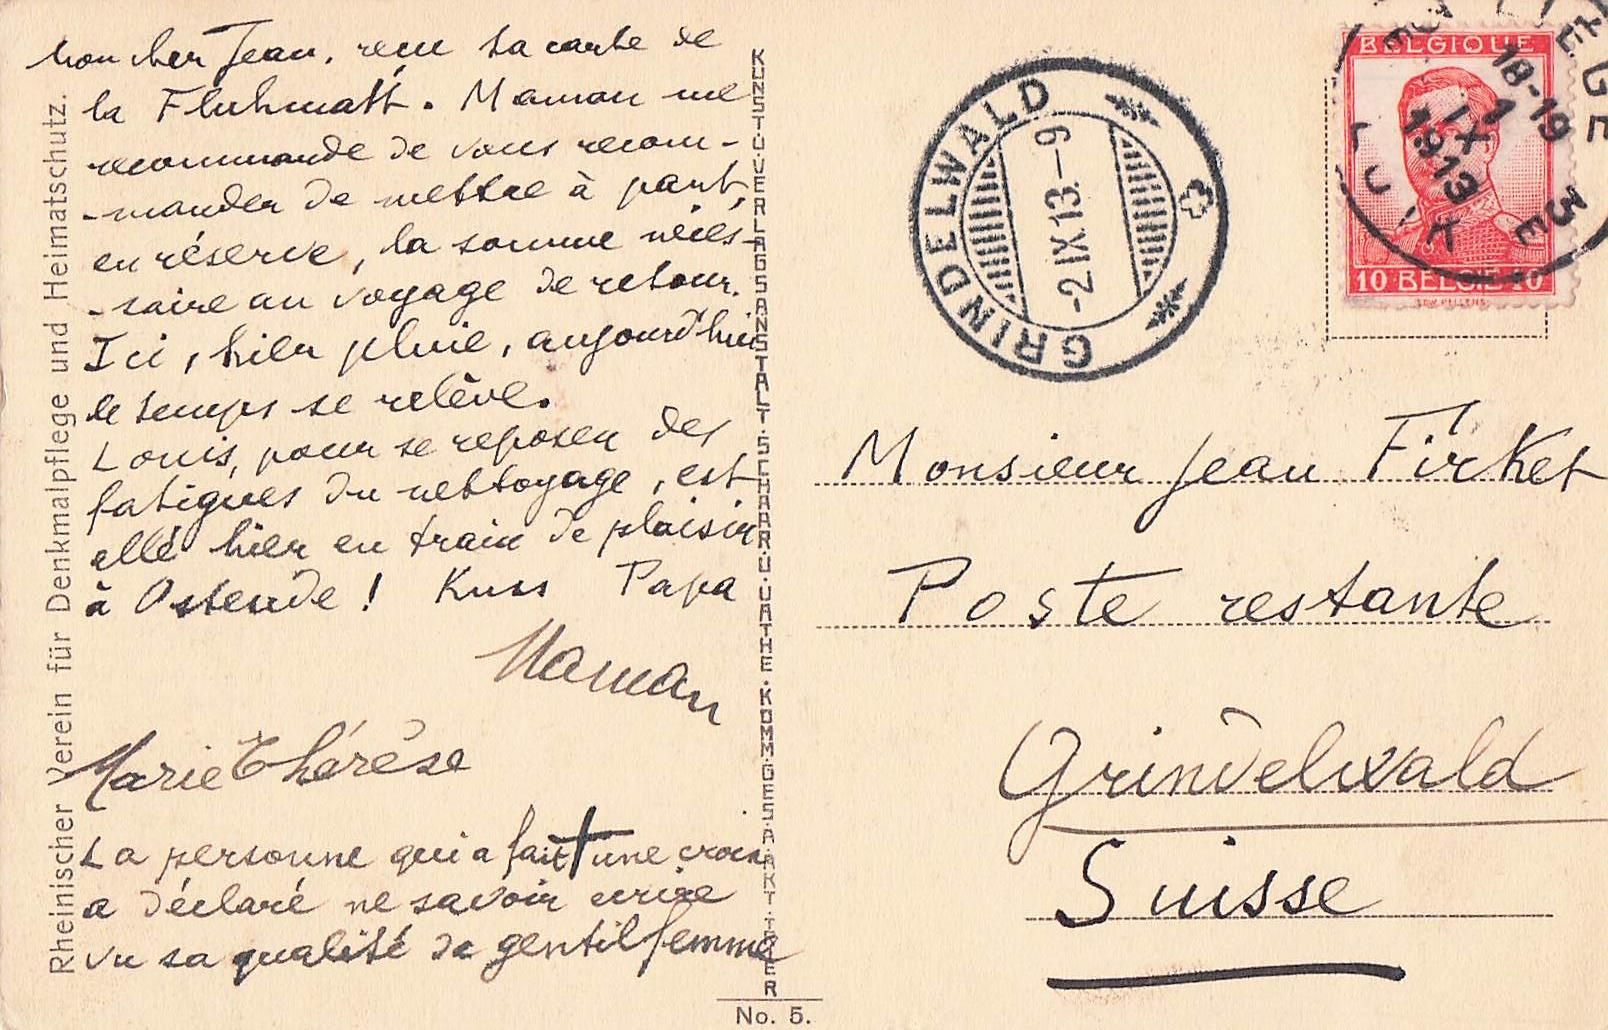 Mon cher Jean, reçu ta carte de
la Fluhmatt. Maman me
recommande de vous recom-
-mander de mettre à part,
en réserve, la somme néces-
-saire au voyage de retour.
Ici, hier pluie, aujourd'hui
le temps se relève.
Louis, pour se reposer des
fatigues du nettoyage, est
allé hier en train de plaisir
à Ostende ! Kuss Papa
Maman
Marie Thérèse
La personne qui a fait + une croix
a déclaré ne savoir écrire
vu sa qualité de gentilfemme
Rheinischer Verein für Denkmalpflege und Heimatschutz.
KUNST U. VERLAGSANSTALT · SCHAAR U. DATHE · KOMM. GES. A. AKT · TRIER
No. 5.
GRINDELWALD
-2 IX 13. - 9
BELGIQUE
10 BELGIE 10
LIEGE
18-19
1
IX
1913
3 E
LUIK
Monsieur Jean Firket
Poste restante
Grindelwald
Suisse